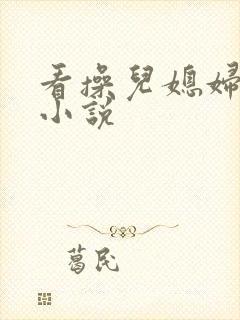 看操兒媳婦
小說
葛民